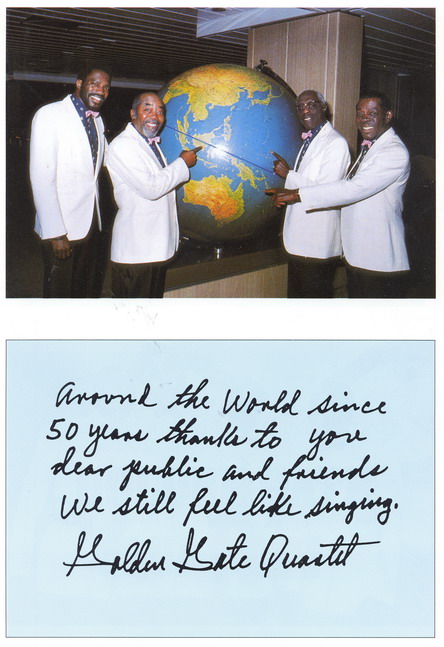 Around the World since
50 years thanks to you
dear public and friends
We still feel like singing.
Golden Gate Quartet